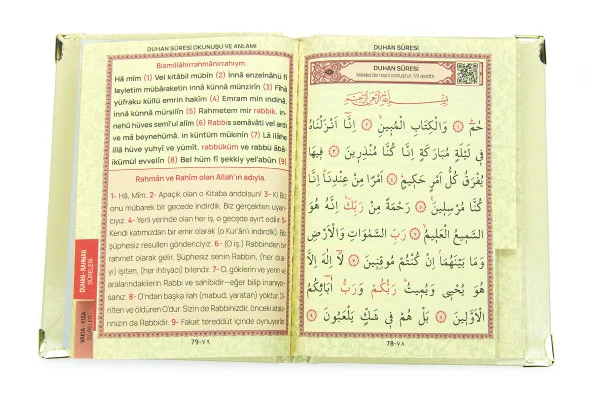 DUHAN SÛRESİ OKUNUŞU VE ANLAMI
Bismillâhirrahmânirrahıym.
Hâ mîm (1) Vel kitâbil mubîn (2) İnnâ enzelnâhü fî
leyletim mübâraketin innâ künnâ münzirîn (3) Fîhâ
yüfraku küllü emrin hakîm (4) Emram min ındinâ,
innâ künnâ mürsilîn (5) Rahmetem mir rabbik, in-
nehû hüves semî'ul alîm (6) Rabbis semâvâti vel ardı
ve mâ beynehümâ, in küntüm mûkınîn (7) Lâ ilâhe
illâ hüve yuhyî ve yümît, rabbüküm ve rabbü âbâ-
ikümül evvelîn (8) Bel hüm fî şekkiy yel'abûn (9)
Rahmân ve Rahîm olan Allah'ın adıyla.
1- Hâ. Mîm. 2- Apaçık olan o Kitaba andolsun! 3- Ki Biz
onu mübarek bir gecede indirdik. Biz gerçekten uyarı-
cıyız. 4- Yerli yerinde olan her iş, o gecede ayırt edilir. 5-
Kendi katımızdan bir emir olarak (o Kur'ânı indirdik). Biz
şüphesiz resulleri göndericiyiz. 6- (O iş,) Rabbinden bir
rahmet olarak gelir. Şüphesiz senin Rabbin, (her du-
yı) işiten, (her ihtiyacı) bilendir. 7- O, göklerin ve yerin ve
aralarındakilerin Rabbi ve sahibidir—eğer bilip inanıyor-
sanız. 8- O'ndan başka ilah (mabud, yaratan) yoktur. Di-
rilten ve öldüren O'dur. Sizin de Rabbinizdir, önceki ataları-
nızın da Rabbidir. 9- Fakat tereddüt içinde oynuyorlar.
79-٧٩
DUHAN - RAHMAN
SÛRELERİ
VAKIA - KISA
SÛRELER
DUHAN SÛRESİ
DUHAN SÛRESİ
Mekke'de nazil olmuştur. 59 ayettir.
بِسْمِ اللّٰهِ الرَّحْمٰنِ الرَّحِيمِ
حٰمٓ ﴿١﴾ وَالْكِتَابِ الْمُبِينِ ﴿٢﴾ اِنَّٓا اَنْزَلْنَاهُ
فِي لَيْلَةٍ مُبَارَكَةٍ اِنَّا كُنَّا مُنْذِرِينَ ﴿٣﴾ فِيهَا
يُفْرَقُ كُلُّ اَمْرٍ حَكِيمٍ ﴿٤﴾ اَمْرًا مِنْ عِنْدِنَا اِنَّا
كُنَّا مُرْسِلِينَ ﴿٥﴾ رَحْمَةً مِنْ رَبِّكَ اِنَّهُ هُوَ
السَّمِيعُ الْعَلِيمُ ﴿٦﴾ رَبِّ السَّمٰوَاتِ وَالْاَرْضِ
وَمَا بَيْنَهُمَا اِنْ كُنْتُمْ مُوقِنِينَ ﴿٧﴾ لَٓا اِلٰهَ اِلَّا
هُوَ يُحْيِي وَيُمِيتُ رَبُّكُمْ وَرَبُّ اٰبَٓائِكُمُ
الْاَوَّلِينَ ﴿٨﴾ بَلْ هُمْ فِي شَكٍّ يَلْعَبُونَ ﴿٩﴾
78-٧٨